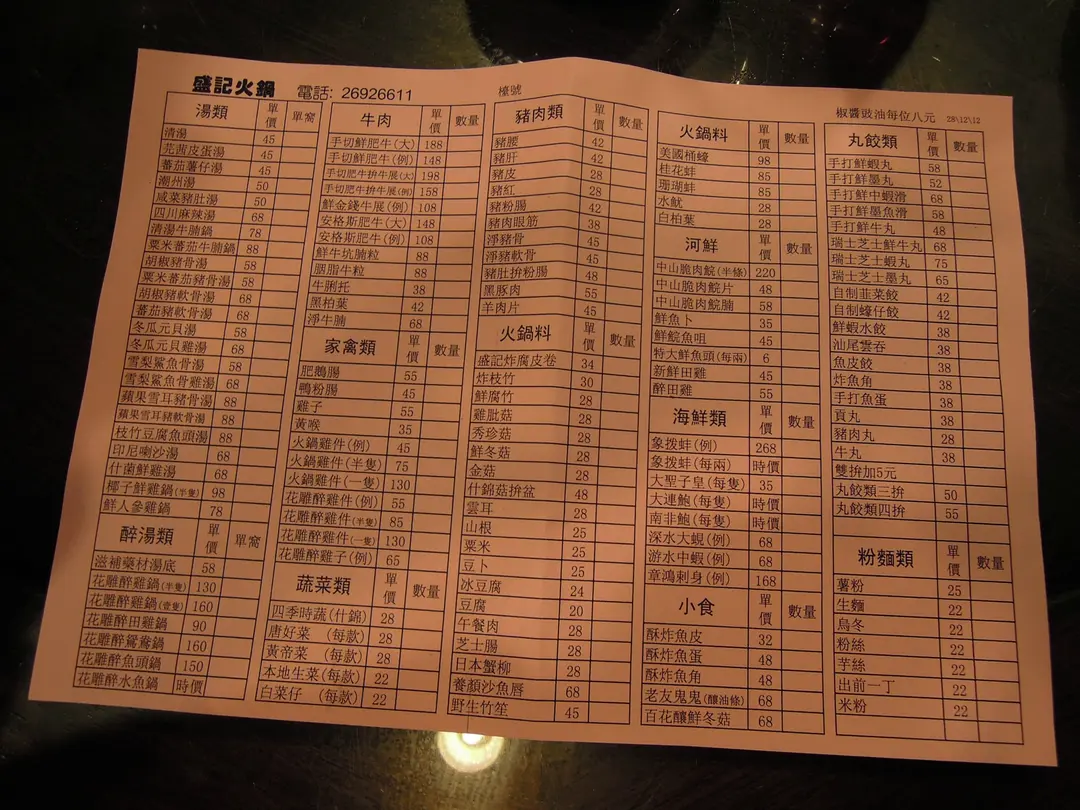 盛記火鍋 電話: 26926611
檯號
椒醬豉油每位八元 28\12\12
湯類 單價 單窩
清湯 45
芫茜皮蛋湯 45
蕃茄薯仔湯 45
潮州湯 50
咸菜豬肚湯 50
四川麻辣湯 68
清湯牛腩鍋 78
粟米蕃茄牛腩鍋 88
胡椒豬骨湯 58
粟米蕃茄豬骨湯 58
胡椒豬軟骨湯 68
蕃茄豬軟骨湯 68
冬瓜元貝湯 58
冬瓜元貝雞湯 68
雪梨鯊魚骨湯 58
雪梨鯊魚骨雞湯 68
蘋果雪耳豬骨湯 88
蘋果雪耳豬軟骨湯 88
枝竹豆腐魚頭湯 88
印尼喇沙湯 68
什菌鮮雞湯 68
椰子鮮雞鍋(半隻) 98
鮮人參雞鍋 78
醉湯類 單價 單窩
滋補藥材湯底 58
花雕醉雞鍋(半隻) 130
花雕醉雞鍋(壹隻) 160
花雕醉田雞鍋 90
花雕醉鴛鴦鍋 160
花雕醉魚頭鍋 150
花雕醉水魚鍋 時價
牛肉 單價 數量
手切鮮肥牛(大) 188
手切鮮肥牛(例) 148
手切肥牛拚牛展(大) 198
手切肥牛拚牛展(例) 158
鮮金錢牛展(例) 108
安格斯肥牛(大) 148
安格斯肥牛(例) 108
鮮牛坑腩粒 88
胭脂牛粒 88
牛脷托 38
黑柏葉 42
淨牛腩 68
家禽類 單價 數量
肥鵝腸 55
鴨粉腸 45
雞子 55
黃喉 35
火鍋雞件(例) 45
火鍋雞件(半隻) 75
火鍋雞件(一隻) 130
花雕醉雞件(例) 55
花雕醉雞件(半隻) 85
花雕醉雞件(一隻) 130
花雕醉雞子(例) 65
蔬菜類 單價 數量
四季時蔬(什錦) 28
唐好菜 (每款) 28
黃帝菜 (每款) 28
本地生菜(每款) 22
白菜仔 (每款) 22
豬肉類 單價 數量
豬腰 42
豬肝 42
豬皮 28
豬紅 28
豬粉腸 42
豬肉眼筋 38
淨豬骨 45
淨豬軟骨 45
豬肚拚粉腸 48
黑豚肉 55
羊肉片 45
火鍋料 單價 數量
盛記炸腐皮卷 34
炸枝竹 30
鮮腐竹 28
雞肶菇 28
秀珍菇 28
鮮冬菇 28
金菇 28
什錦菇拚盆 48
雲耳 28
山根 25
粟米 25
豆卜 25
冰豆腐 24
豆腐 20
午餐肉 28
芝士腸 28
日本蟹柳 28
養顏沙魚唇 68
野生竹笙 45
火鍋料 單價 數量
美國桶蠔 98
桂花蚌 85
珊瑚蚌 85
水魷 28
白柏葉 28
河鮮 單價 數量
中山脆肉鯇(半條) 220
中山脆肉鯇片 48
中山脆肉鯇腩 58
鮮魚卜 35
鮮鯇魚咀 45
特大鮮魚頭(每兩) 6
新鮮田雞 45
醉田雞 55
海鮮類 單價 數量
象拔蚌(例) 268
象拔蚌(每兩) 時價
大聖子皇(每隻) 35
大連鮑(每隻) 時價
南非鮑(每隻) 時價
深水大蜆(例) 68
游水中蝦(例) 68
章鴻刺身(例) 168
小食 單價 數量
酥炸魚皮 32
酥炸魚蛋 48
酥炸魚角 48
老友鬼鬼(釀油條) 68
百花釀鮮冬菇 68
丸餃類 單價 數量
手打鮮蝦丸 58
手打鮮墨丸 52
手打鮮中蝦滑 68
手打鮮墨魚滑 58
手打鮮牛丸 48
瑞士芝士鮮牛丸 68
瑞士芝士蝦丸 75
瑞士芝士墨丸 65
自制韮菜餃 42
自制蠔仔餃 42
鮮蝦水餃 38
汕尾雲吞 38
魚皮餃 38
炸魚角 38
手打魚蛋 38
貢丸 38
豬肉丸 28
牛丸 38
雙拚加5元
丸餃類三拚 50
丸餃類四拚 55
粉麵類 單價 數量
薯粉 25
生麵 22
烏冬 22
粉絲 22
芋絲 22
出前一丁 22
米粉 22